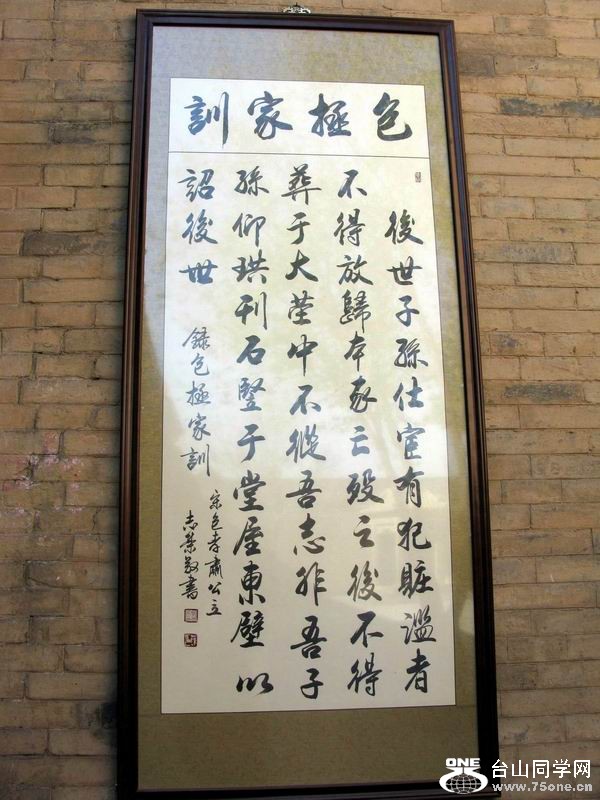 包拯家訓
後世子孫仕宦有犯賍濫者
不得放歸本家亡歿之後不得
葬于大塋中不從吾志非吾子
孫仰珙刊石竪于堂屋東壁以
詔後世 録包拯家訓
宋包孝肅公立
志榮敬書
ONE 台山同学网
www.75one.cn